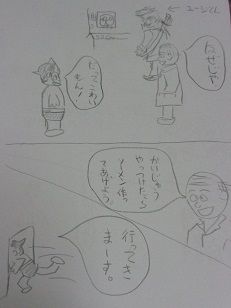 ユージくん
なぜじゃ
だってこわい
もん！
かいじゅう
やっつけたら
ソーメン作っ
てあげよう
行ってき
まーす。